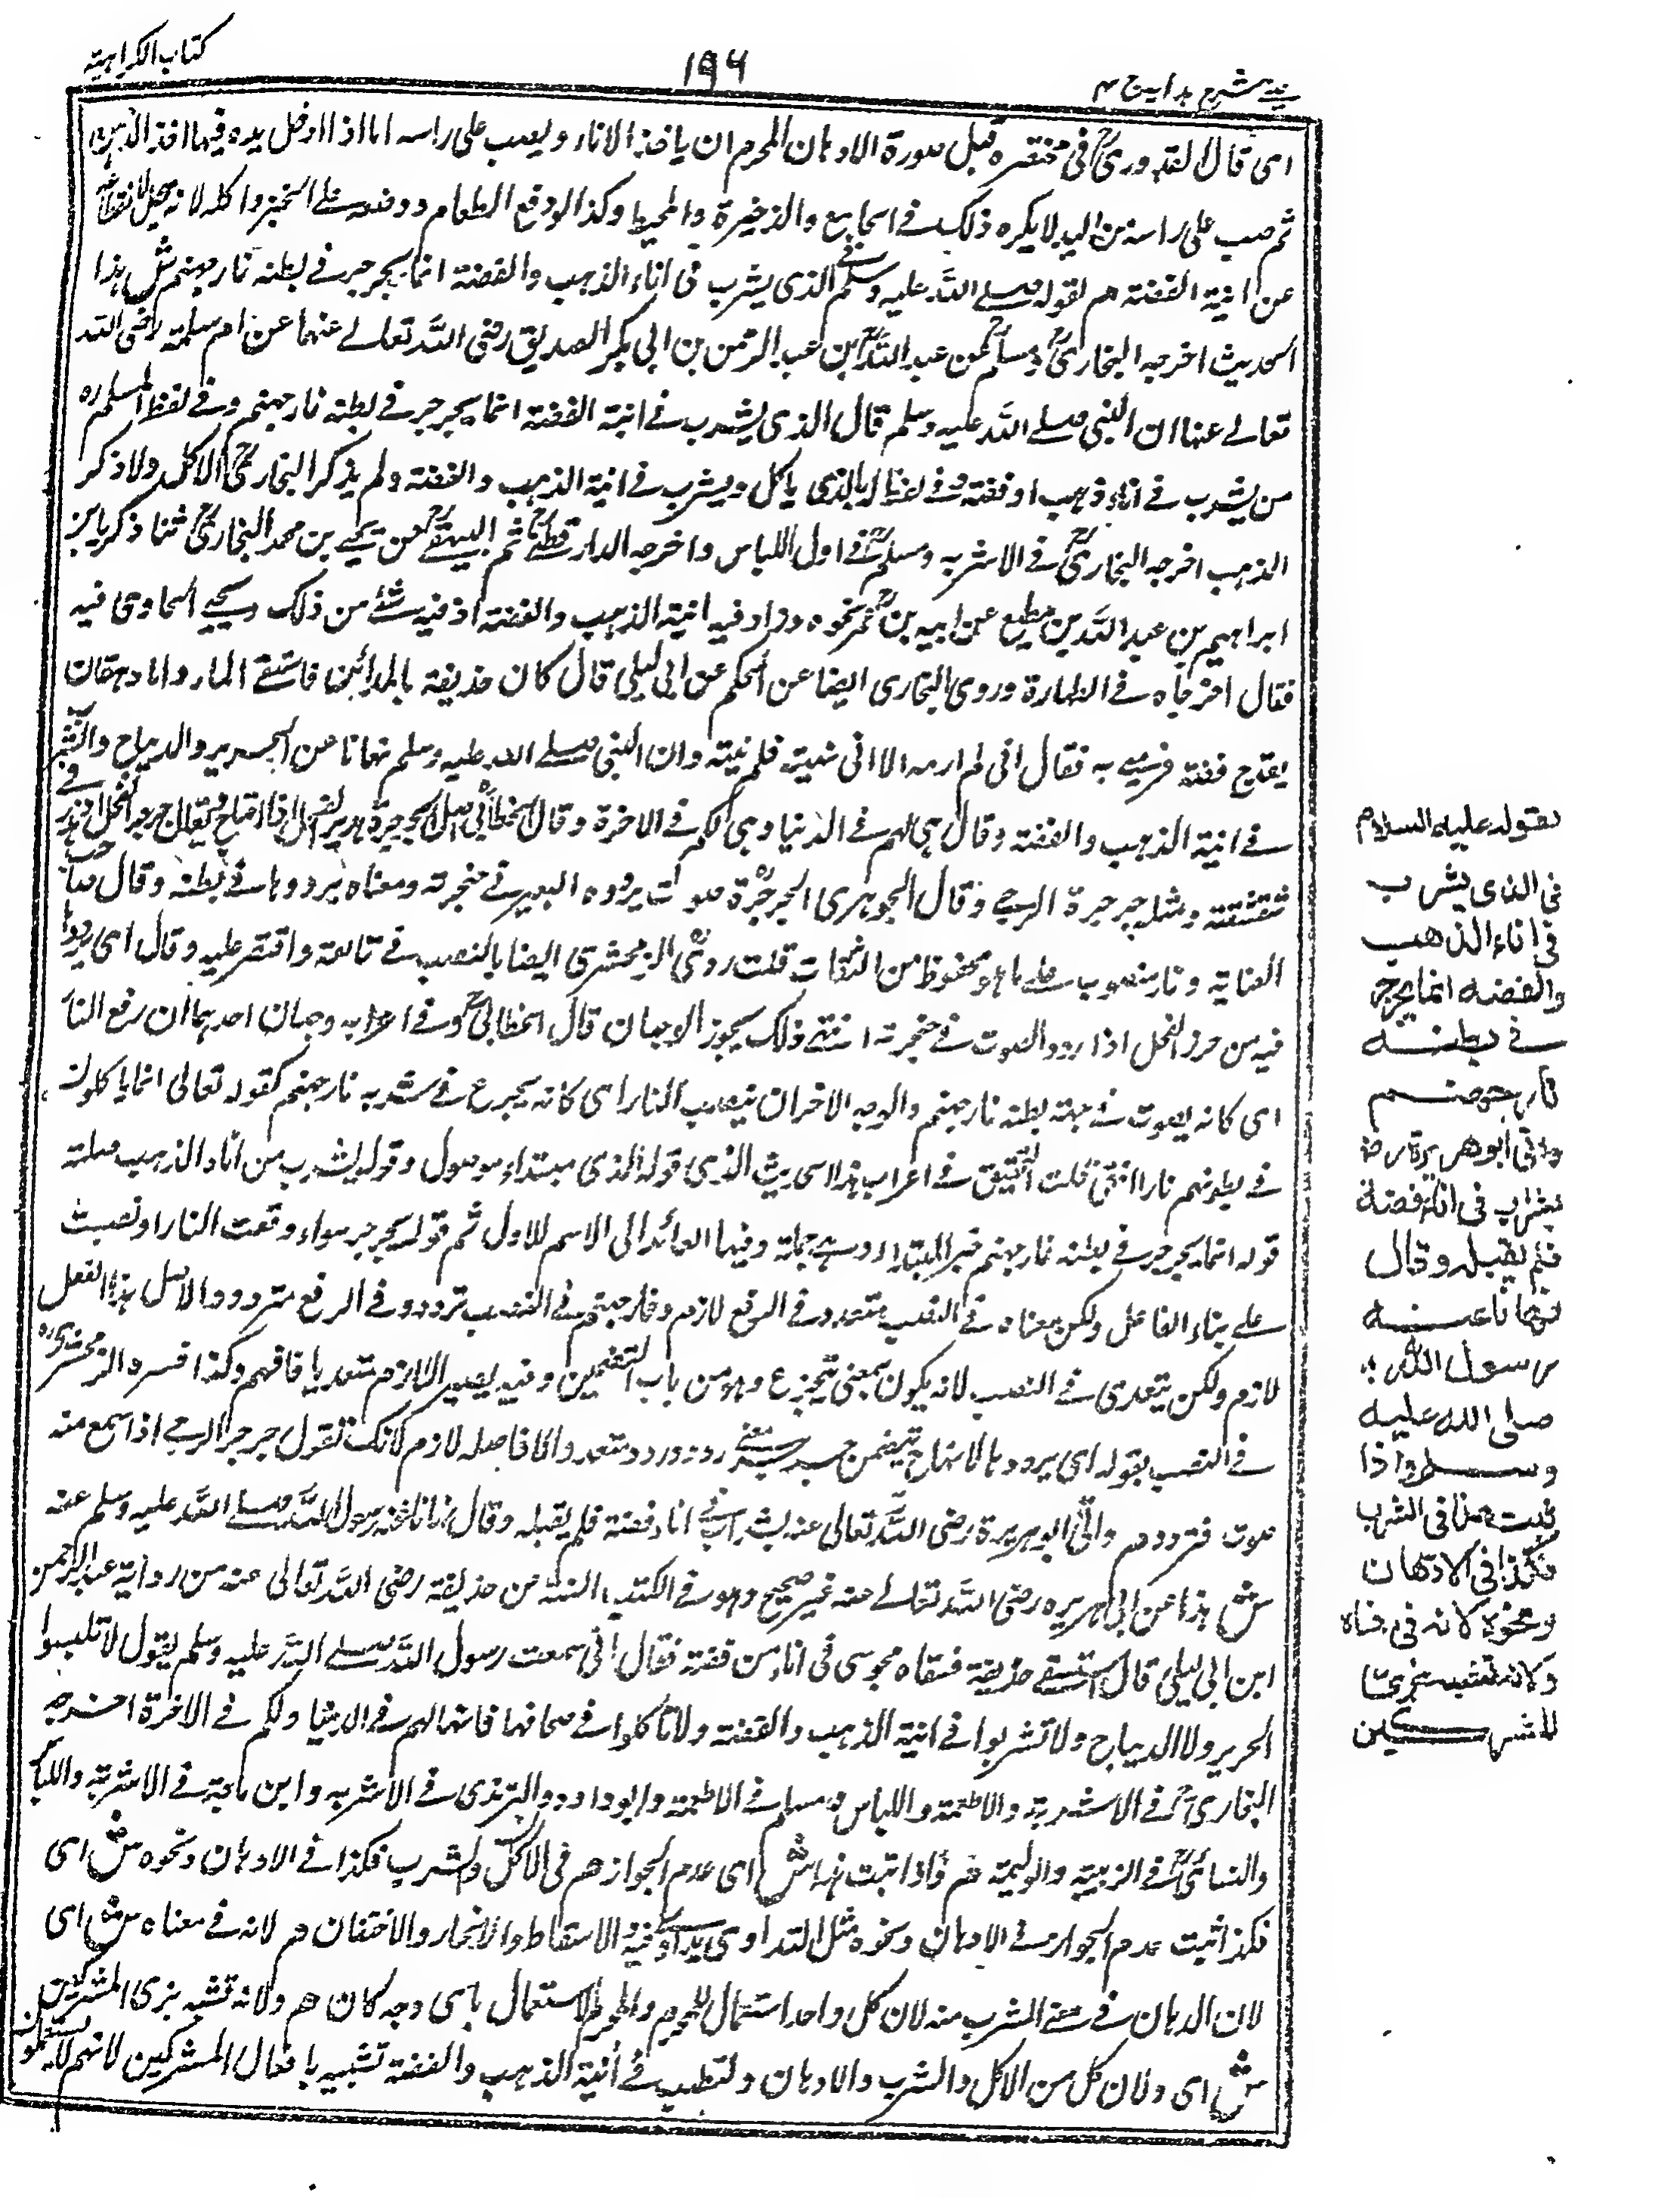 كتاب الكراهية
١٩٦
عينى شرح هدايہ ج ٤
اى قال القدورى فى مختصره قيل صورة الادهان المحرم ان ياخذ الاناء ويصب على راسه اما اذا ادخل يده فيها اخذ الدهن
ثم صب على راسه من اليد لا يكره ذلك فى الجامع والذخيرة والمحيط وكذا لو دفع الطعام ووضعه على الخبز واكله لانه
عن انية الفضة هم لقوله صلى الله عليه وسلم فى الذى يشرب فى اناء الذهب والفضة انما يجرجر فى بطنه نار جهنم ش هذا
الحديث اخرجه البخارى ومسلم عن عبد الله بن عبد الرحمن بن ابى بكر الصديق رضى الله تعالى عنهما عن ام سلمة رضى الله
تعالى عنها ان النبى صلى الله عليه وسلم قال الذى يشرب فى انية الفضة انما يجرجر فى بطنه نار جهنم وفى لفظ لمسلم
من يشرب فى اناء ذهب او فضة وفى لفظ له الذى ياكل ويشرب فى انية الذهب والفضة ولم يذكر البخارى الاكل ولا ذكر
الذهب اخرجه البخارى فى الاشربه ومسلم فى اول اللباس واخرجه الدارقطنى ثم البيهقى عن يحيى بن محمد البخارى ثنا ذكريا بن
ابراهيم بن عبد الله بن مطيع عن ابيه بن عمر نحوه وزاد فيه انية الذهب والفضة او فيه شئ من ذلك
فقال اخرجاه فى الطهارة وروى البخارى ايضا عن الحكم عن ابى ليلى قال كان حذيفة بالمدائن فاستسقى الماء واتاه دهقان
بقدح فضة فرمى به فقال انى لم ارمه الا انى نهيته فلم ينته وان النبى صلى الله عليه وسلم نهانا عن الحرير والديباج والشرب
فى انية الذهب والفضة وقال هى لهم فى الدنيا وهى لكم فى الاخرة وقال الخطابى اصل الجرجرة هدير الفحل اذا اهتاج
شقشقته ومثله جرجرة الرحى وقال الجوهرى الجرجرة صوت يردده البعير فى حنجرته ومعناه يرددها فى بطنه وقال صاحب
العناية ونار منصوب على ما هو محفوظ من الثقات قلت روى الزمخشرى ايضا بالنصب فى واقتصر عليه وقال اى يرددها
فيه من جرجر الفحل اذا ردد الصوت فى حنجرته انتهى ذلك يجوز الوجهان قال الخطابى وفى اعرابه وجهان احدهما ان يرفع النار
اى كانه يصوت فى جهة بطنه نار جهنم والوجه الاخر ان ينصب النار اى كانه يجرع فى شربه نار جهنم كقوله تعالى انما ياكلون
فى بطونهم نارا انتهى قلت التحقيق فى اعراب هذا الحديث الذى قوله الذى مبتداء موصول وقوله يشرب من اناء الذهب صلته
قوله انما يجرجر فى بطنه نار جهنم خبر المبتداء وهى جملة وفيها العائد الى الاسم الاول ثم قوله يجرجر سواء رفعت النار او نصبت
على بناء الفاعل ولكن معناه فى النصب متعد وفى الرفع لازم ونار جهنم فى النصب تردد وفى الرفع متردد والاصل هذا الفعل
لازم ولكن يتعدى فى النصب لانه يكون بمعنى يتجرع وهو من باب التضمين وفيه يصير اللازم متعديا فافهم وكذا فسره الزمخشرى
فى النصب بقوله اى يرددها ردد وردد متعد والا فاصله لازم لانك تقول جرجر الرحى اذا سمع منه
صوت فتردد هم واتى ابو هريرة رضى الله تعالى عنه بشراب فى اناء فضة فلم يقبله وقال نهانا عنه رسول الله صلى الله عليه وسلم عنه
ش هذا عن ابى هريره رضى الله تعالى عنه غير صحيح وهو فى الكتب الستة عن حذيفة رضى الله تعالى عنه من رواية عبد الرحمن
ابن ابى ليلى قال استسقى حذيفة فسقاه مجوسى فى اناء من فضة فقال انى سمعت رسول الله صلى الله عليه وسلم يقول لا تلبسوا
الحرير ولا الديباج ولا تشربوا فى انية الذهب والفضة ولا تاكلوا فى صحافها فانها لهم فى الدنيا ولكم فى الاخرة اخرجه
البخارى فى الاشربة والاطعمة واللباس ومسلم فى الاطعمة وابو داود والترمذى فى الاشربه وابن ماجة فى الاشربة واللباس
والنسائى فى الزينة والوليمة هم واذا ثبت هذا ش اى عدم الجواز هم فى الاكل والشرب فكذا فى الادهان ونحوه ش اى
فكذا ثبت عدم الجواز فى الادهان ونحوه مثل التداوى الاسقاط والانجمار والاختقان هم لانه فى معناه ش اى
لان الدهان فى معنى الشرب منه لان كل واحد استعمال للمحرم والمحرم الاستعمال باى وجه كان هم ولانه تشبه بزى المشركين
ش اى ولان كل من الاكل والشرب والادهان والتطيب فى أنية الذهب والفضة تشبيه بافعال المشركين لانهم
لقوله عليه السلام
فى الذى يشرب
فى اناء الذهب
والفضه انما يجرجر
فى بطنه
نار جهنم
واتى ابوهريرة رض
بشراب فى اناء فضة
فلم يقبله وقال
نهانا عنه
رسول الله
صلى الله عليه
وسلم واذا
ثبت هذا فى الشرب
فكذا فى الادهان
ونحوه لانه فى معناه
ولانه تشبه بزى
المشركين